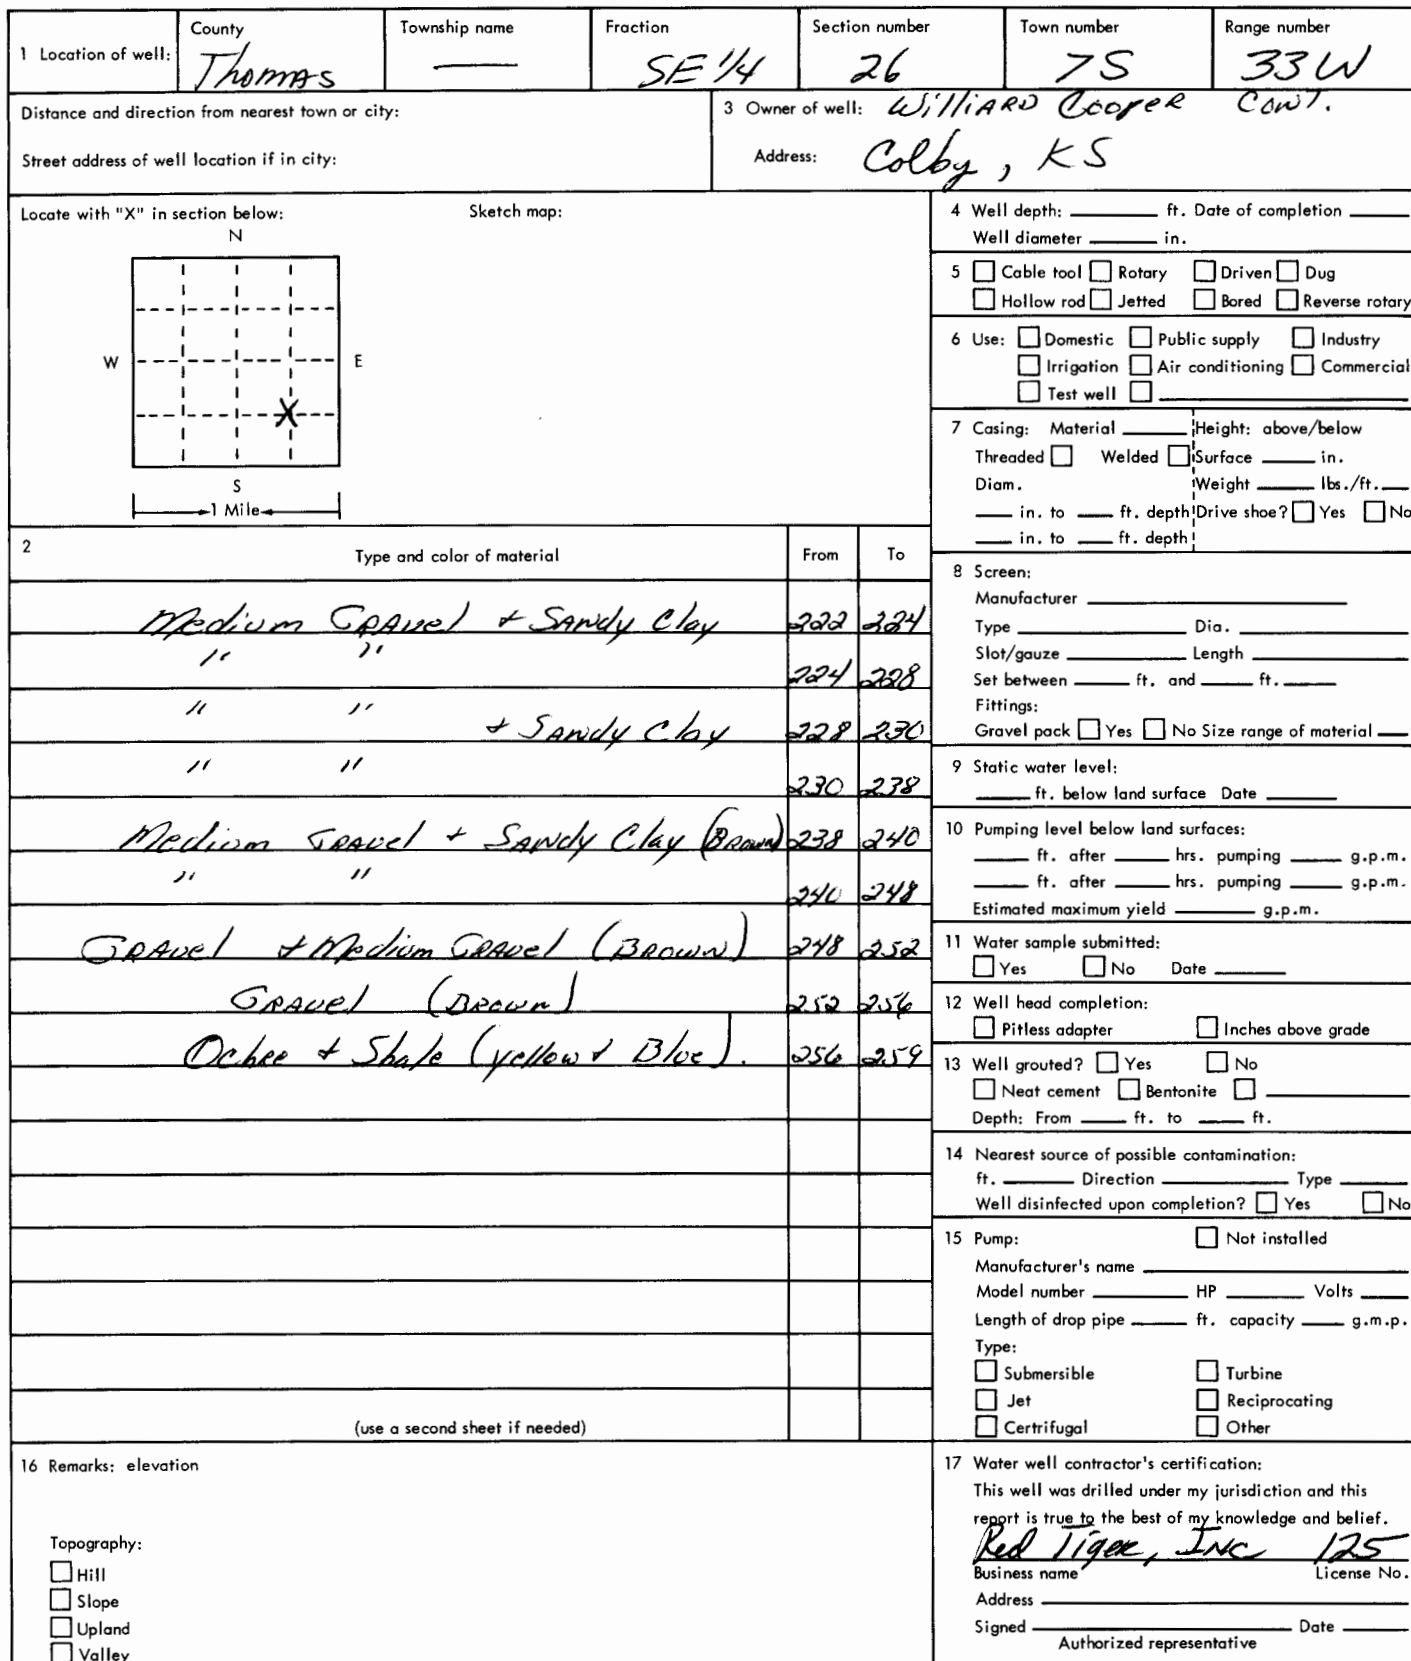 1 Location of well: County Township name Fraction Section number Town number Range number
Thomas — SE 1/4 26 7S 33W
Distance and direction from nearest town or city:
Street address of well location if in city:
3 Owner of well: Williard Cooper Cont.
Address: Colby, KS
Locate with "X" in section below: Sketch map:
N
W E
X
S
1 Mile
2 Type and color of material From To
Medium Gravel + Sandy Clay 222 224
" " 224 228
" " + Sandy Clay 228 230
" " 230 238
Medium Gravel + Sandy Clay (Brown) 238 240
" " 240 248
Gravel + Medium Gravel (Brown) 248 252
Gravel (Brown) 252 256
Ochre + Shale (yellow + Blue). 256 259
(use a second sheet if needed)
4 Well depth: ____ ft. Date of completion ____
Well diameter ____ in.
5 ☐ Cable tool ☐ Rotary ☐ Driven ☐ Dug
☐ Hollow rod ☐ Jetted ☐ Bored ☐ Reverse rotary
6 Use: ☐ Domestic ☐ Public supply ☐ Industry
☐ Irrigation ☐ Air conditioning ☐ Commercial
☐ Test well ☐ ____
7 Casing: Material ____ Height: above/below
Threaded ☐ Welded ☐ Surface ____ in.
Diam. Weight ____ lbs./ft. ____
____ in. to ____ ft. depth Drive shoe? ☐ Yes ☐ No
____ in. to ____ ft. depth
8 Screen:
Manufacturer ____
Type ____ Dia. ____
Slot/gauze ____ Length ____
Set between ____ ft. and ____ ft. ____
Fittings:
Gravel pack ☐ Yes ☐ No Size range of material ____
9 Static water level:
____ ft. below land surface Date ____
10 Pumping level below land surfaces:
____ ft. after ____ hrs. pumping ____ g.p.m.
____ ft. after ____ hrs. pumping ____ g.p.m.
Estimated maximum yield ____ g.p.m.
11 Water sample submitted:
☐ Yes ☐ No Date ____
12 Well head completion:
☐ Pitless adapter ☐ Inches above grade
13 Well grouted? ☐ Yes ☐ No
☐ Neat cement ☐ Bentonite ☐ ____
Depth: From ____ ft. to ____ ft.
14 Nearest source of possible contamination:
ft. ____ Direction ____ Type ____
Well disinfected upon completion? ☐ Yes ☐ No
15 Pump: ☐ Not installed
Manufacturer's name ____
Model number ____ HP ____ Volts ____
Length of drop pipe ____ ft. capacity ____ g.m.p.
Type:
☐ Submersible ☐ Turbine
☐ Jet ☐ Reciprocating
☐ Certrifugal ☐ Other
16 Remarks: elevation
Topography:
☐ Hill
☐ Slope
☐ Upland
☐ Valley
17 Water well contractor's certification:
This well was drilled under my jurisdiction and this
report is true to the best of my knowledge and belief.
Red Tiger, Inc 125
Business name License No.
Address ____
Signed ____ Date ____
Authorized representative